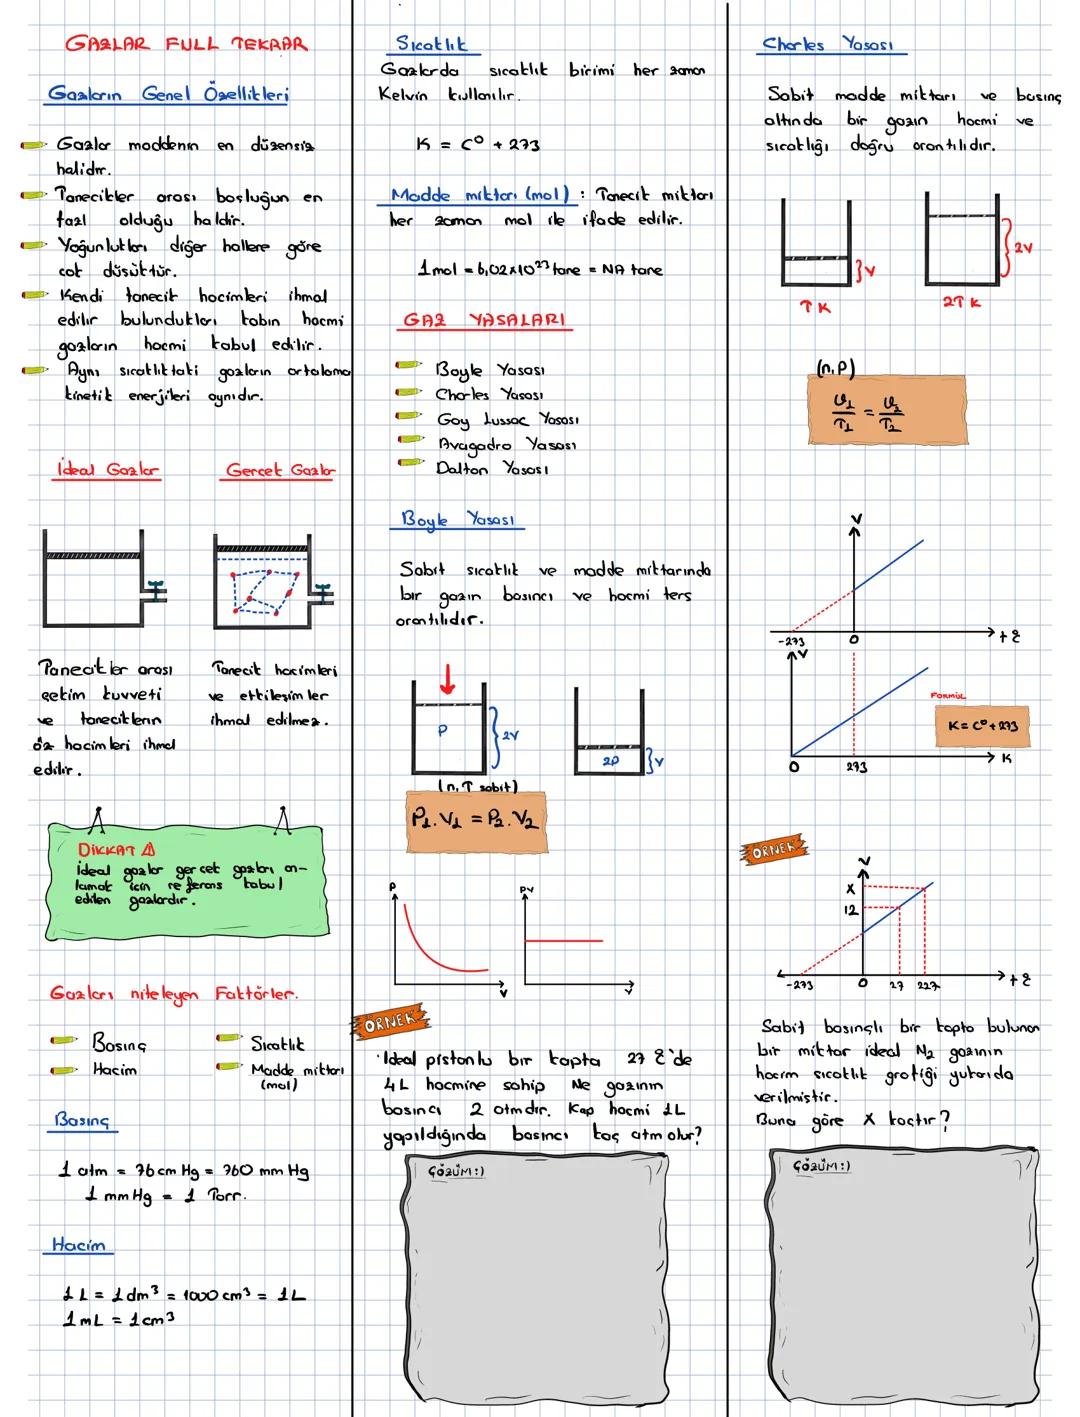 GAZLAR FULL TEKRAR
Gazların Genel Özellikleri
Gazlar maddenin en düzensiz
halidir.
Tanecikler arası boşluğun en
fazl olduğu haldir.
Yoğunlukları diğer hallere göre
çok düşüktür.
Kendi tanecik hacimleri ihmal
edilir bulundukları kabın hacmi
gazların hacmi kabul edilir.
Aynı sıcaklıktaki gazların ortalama
kinetik enerjileri aynıdır.
İdeal Gazlar
Gerçek Gazlar
Tanecikler arası
çekim kuvveti
ve taneciklerin
öz hacimleri ihmal
edilir.
Tanecik hacimleri
ve etkileşimler
ihmal edilmez.
DİKKAT ⚠
İdeal gazlar gerçek gazları an-
lamak için referans kabul
edilen gazlardır.
Gazları niteleyen Faktörler.
Basınç
Hacim
Sıcaklık
Madde miktarı
(mol)
Basınç
1 atm = 76 cm Hg = 760 mm Hg
1 mm Hg = 1 Torr.
Hacim
1 L = 1 dm³ = 1000 cm³ = 1L
1 mL = 1 cm³
Sıcaklık
Gazlarda sıcaklık birimi her zaman
Kelvin kullanılır.
K = C° + 273
Madde miktarı (mol) : Tanecik miktarı
her zaman mol ile ifade edilir.
1 mol = 6,02x10²³ tane = NA tane
GAZ YASALARI
Boyle Yasası
Charles Yasası
Gay Lussac Yasası
Avagadro Yasası
Dalton Yasası
Boyle Yasası
Sabit sıcaklık ve madde miktarında
bir gazın basıncı ve hacmi ters
orantılıdır.
P
2V
2P
V
(n, T sabit)
P₁.V₁ = P₂.V₂
P
V
PV
V
ÖRNEK
İdeal pistonlu bir kapta 27 °C'de
4L hacmine sahip Ne gazının
basıncı 2 atmdir. Kap hacmi 1L
yapıldığında basıncı kaç atm olur?
ÇÖZÜM:)
Charles Yasası
Sabit madde miktarı ve basınç
altında bir gazın hacmi ve
sıcaklığı doğru orantılıdır.
V
2V
T K
2T K
(n,P)
V₁/T₁ = V₂/T₂
V
-273
0
t °C
V
FORMÜL
K = C° + 273
0
273
K
ÖRNEK
V
X
12
-273
0
27
227
t °C
Sabit basınçlı bir kapta bulunan
bir miktar ideal N₂ gazının
hacim sıcaklık grafiği yukarıda
verilmiştir.
Buna göre X kaçtır?
ÇÖZÜM:)